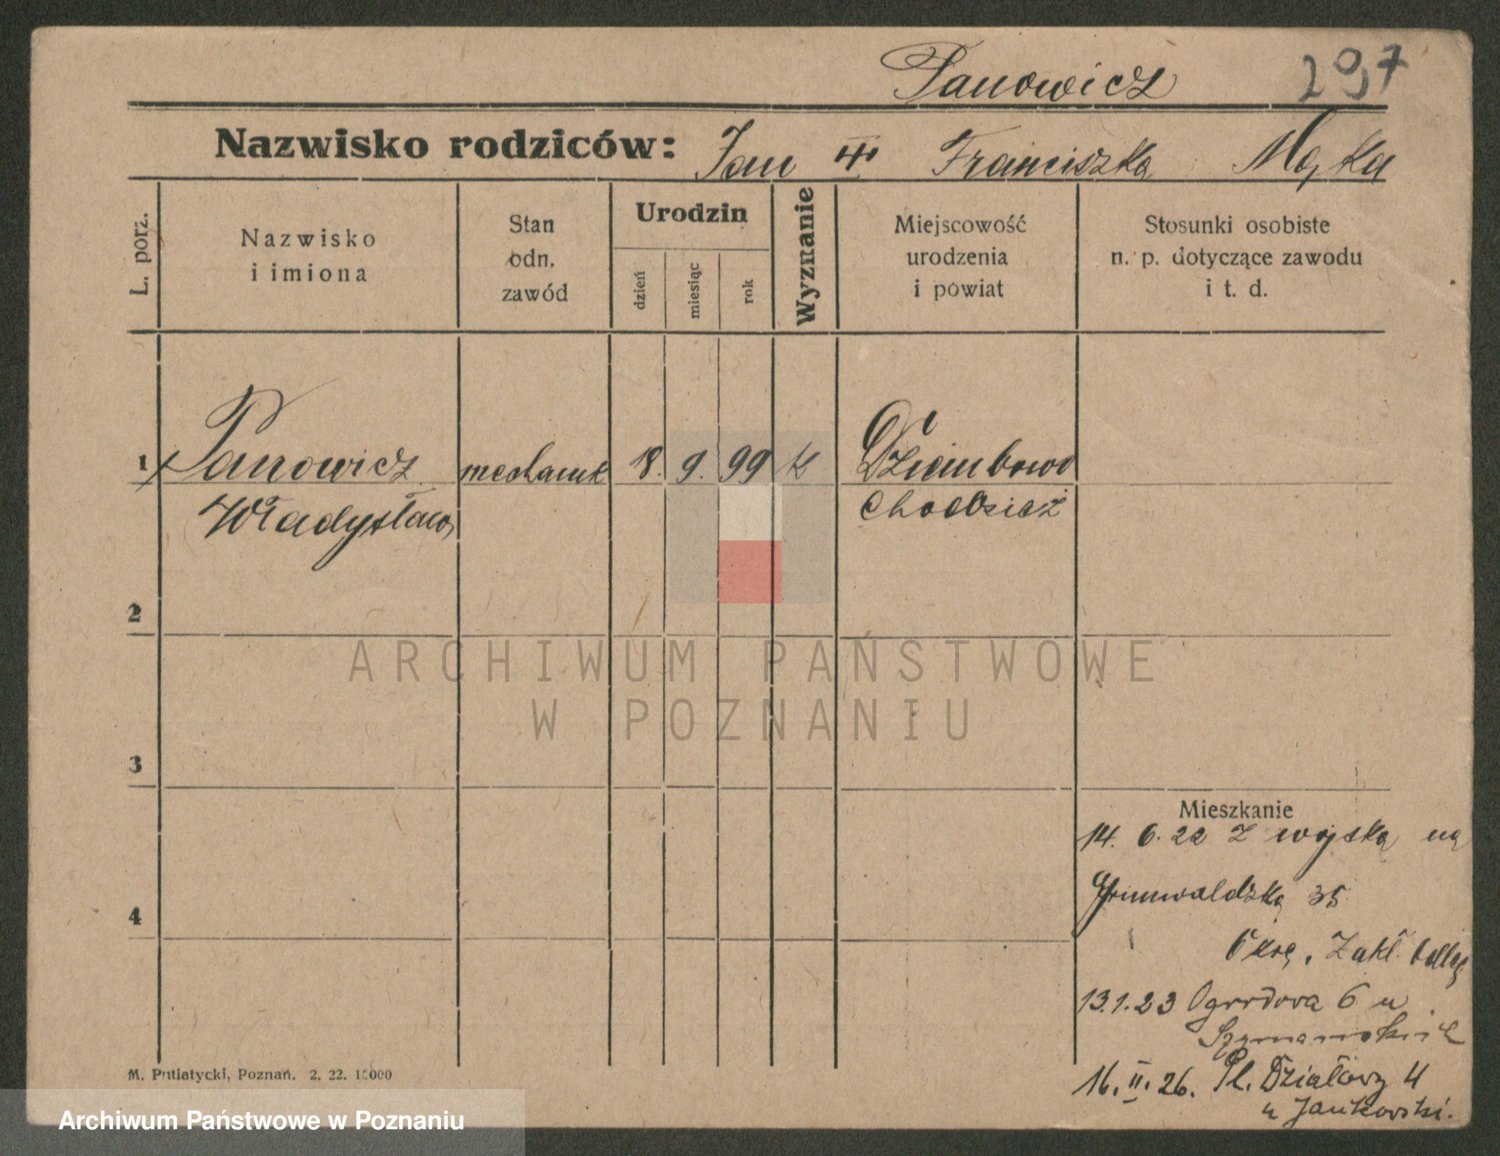 Panowicz 297
Nazwisko rodziców: Jan Franciszka Mąka
L. porz.
Nazwisko
i imiona
Stan
odn.
zawód
Urodzin
dzień
miesiąc
rok
Wyznanie
Miejscowość
urodzenia
i powiat
Stosunki osobiste
n. p. dotyczące zawodu
i t. d.
1 Panowicz mechanik 18. 9. 99 k Dziembowo
Władysław Chodzież
2
3
4
Mieszkanie
14. 6. 22 z wojska na
Grunwaldzką 35
Zakł.
13.1.23 Ogrodowa 6 u
Szymańskich
16. II. 26. Pl. Działowy 4
u Jankowski.
M. Putiatycki, Poznań. 2. 22. 10000
ARCHIWUM PAŃSTWOWE
W POZNANIU
Archiwum Państwowe w Poznaniu